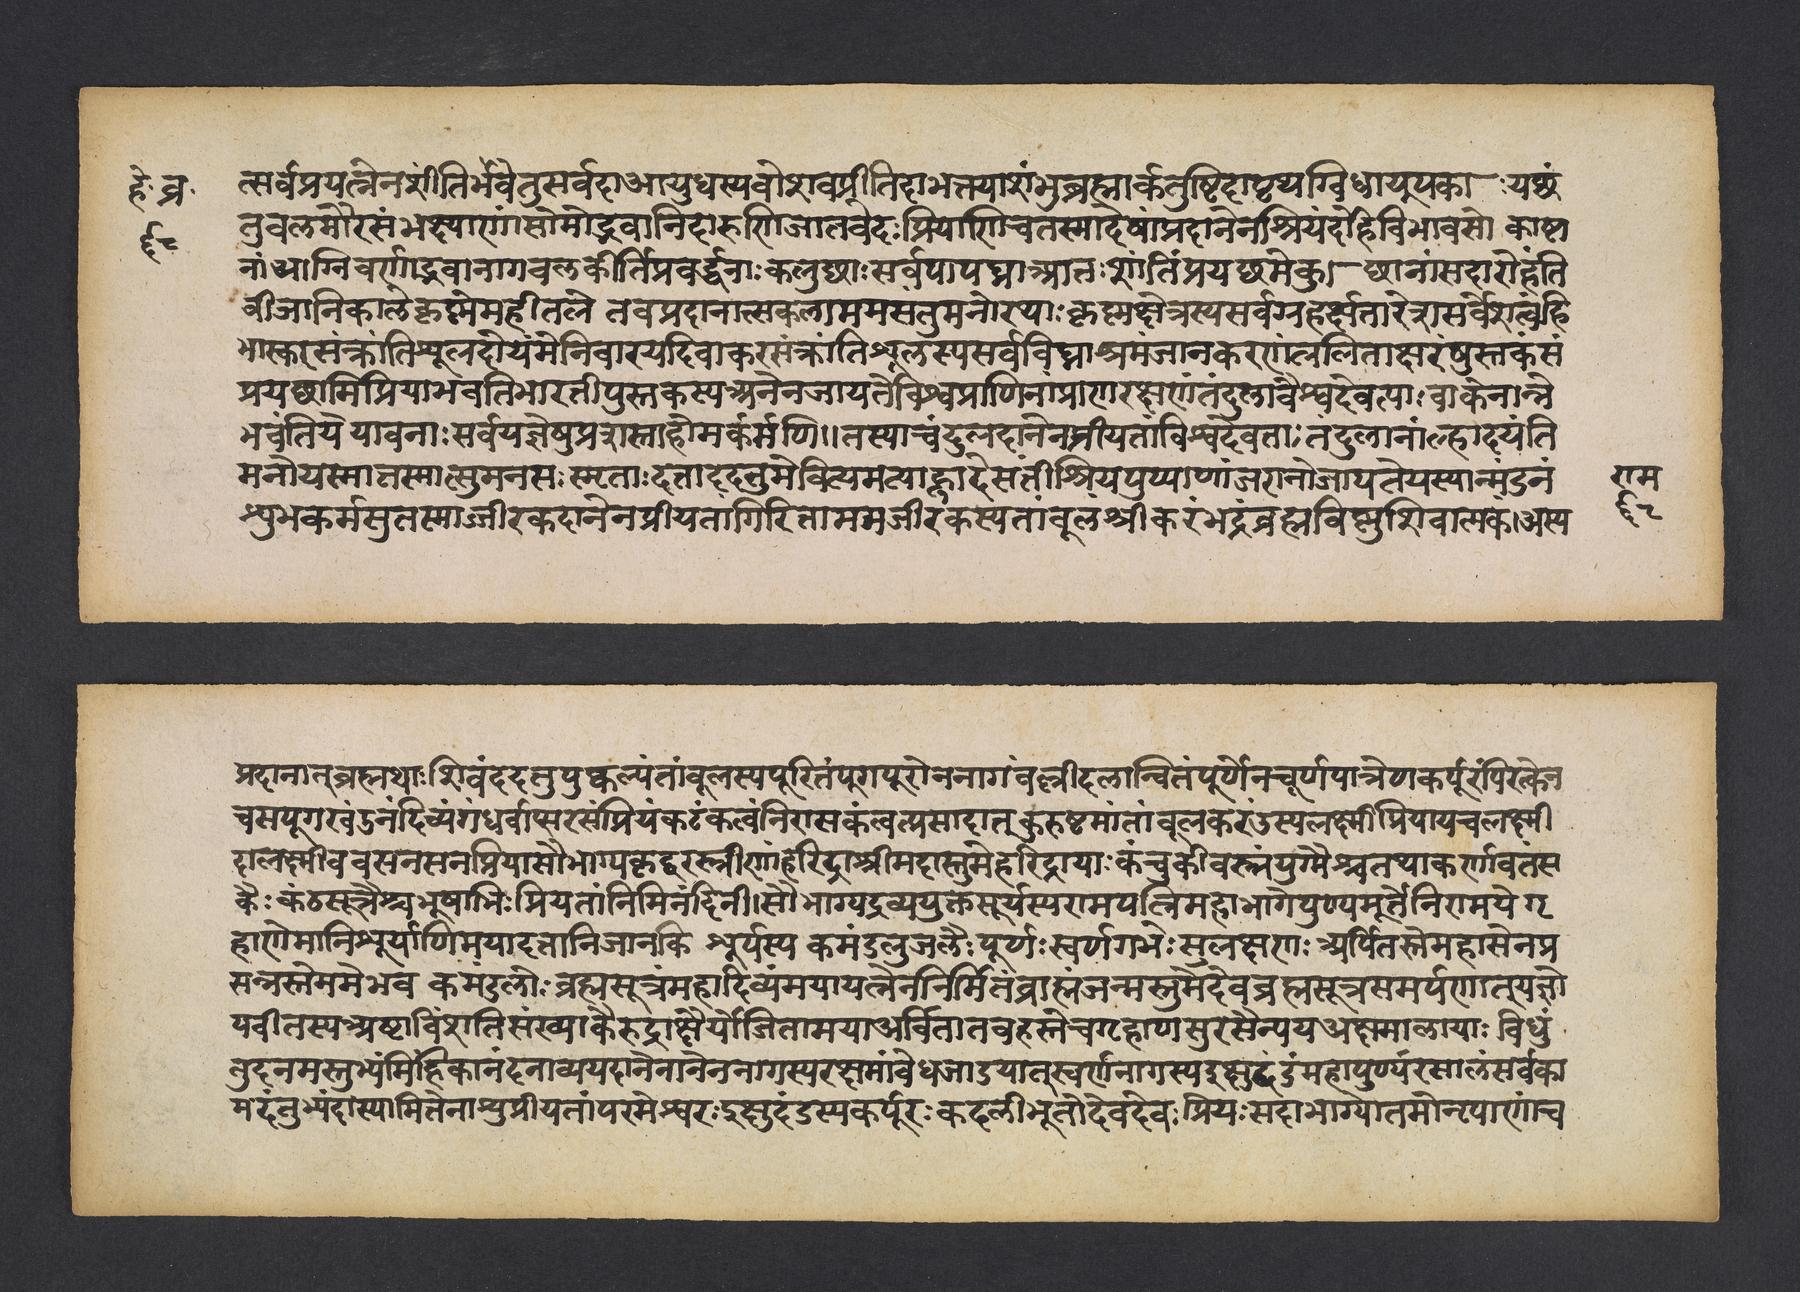 हे. व्र.
त्सर्वप्रयत्नेनशांतिर्भवेतुसर्वदा आयुधस्यवंशवप्रीतिदाभत्तयाशंभुब्रह्मार्कतुष्टिदापृथग्विधायूपका-ःयछं
तुवलमौरसंभक्ष्याणांसोमोद्भवानिदारुणिजातवेदःप्रियाणिचतस्मादेषांप्रदानेनश्रियंदेहिविभावसो काष्टा
नांआग्निवर्णोद्भवानागवल्तकीर्तिप्रवर्द्धनाःकलुछाःसर्वपापघ्नाअतःशांतिंप्रयछमेकु।-छानांसहारोहंति
वीजानिकालेकृष्टेमहीतले तवप्रदानात्सकलाममसंतुमनोरथाःकृष्टक्षेत्रस्यसर्वग्रहर्क्षतारेशसर्वेशत्वंहि
भास्करसंक्रांतिशूलदोयंमेनिवारयदिवाकरसंक्रांतिशूलस्यसर्वविघ्नाश्रमंजानकरणंललिताक्षरंपुस्तकंसं
प्रयछामिप्रियाभवतिभारतीपुस्तकस्यअनेनजायतेविश्वप्राणिनांप्राणरक्षणंतंदुलावैश्वदेवत्याःवाकेनान्ने
भवंतियेयावनाःसर्वयज्ञेषुप्रशस्ताहोमकर्मणि॥तस्याचंदुलदानेनप्रीयतांविश्वदेवताःतंदुलानांल्हादयंति
मनोयस्मात्तस्मात्सुमनसःस्मृताःदत्तादेदतुमेवित्यमत्याह्लादेसतींश्रियंपुष्पाणांजरानोजायतेयस्यान्मंडनं
शुभकर्मसुतस्माज्जीरकदानेनप्रीयतांगिरिजाममजीरकस्यतांवूलंश्रीकरंभद्रंब्रह्मविष्णुशिवात्मकं।अस्य
राम
प्रदानात्ब्रह्मथाःशिवंदेदतुपुष्कल्यंतांवूलस्यपूरितंपूगपूरोननागवल्लीदलान्वितंपूर्णेनचूर्णपात्रेणकर्पूरपिरकेन
चसपूगखंडनंदिव्यंगंधर्वाप्सरसंप्रियंकटंकत्वंनिरासकंत्वत्प्रसादात्कुरुष्टमांतांवूलकरंडस्यलक्ष्मीप्रियायचलक्ष्मी
दालक्ष्मीववसनसनप्रियासौभाग्यकृद्वरस्त्रीणांहरिद्राश्रीमदास्तुमेहरिद्रायाःकंचुकीवस्त्रयुग्मैश्चतथाकर्णावतंस
कैःकंठसूत्रैश्चभूषाभिःप्रियतांनिमिनंदिनी।सौभाग्यद्रव्ययुक्तसूर्यस्यरामपत्निमहाभागेपुण्यमूर्तेनिरामयेगृ
हाणेमानिशूर्पाणिमयादत्तानिजानकि शूर्पस्य कमंडलुजलैःपूर्णःस्वर्णगर्भःसुलक्षणःअर्पितस्तेमहासेनप्र
सन्नस्तेममेभव कमंडलोःब्रह्मसूत्रंमहादिव्यंमयायत्नेननिर्मितंब्राह्मंजन्मस्तुमेदेवब्रह्मसूत्रसमर्पणात्यज्ञो
पवीतस्यअष्टाविंशतिसंख्याकैरुद्राक्षैर्योजितामयाअर्विताततवहस्तेचगृहाणसुरसैन्यपअक्षमालायाःविधुं
तुदनमस्तुभ्यंसिंहिकानंदनाव्ययदानेनानेननागस्यरक्षमांवेधजाडयात्स्वर्णनागस्यइक्षुदंडंमहापुण्यंरसालंसर्वका
मदंतुभ्यंदास्यामितेनाशुप्रीयतांपरमेश्वरःइक्षुदंडस्यकर्पूरःकदलीभूतोदेवदेवःप्रियःसदाभाग्योतमोनृपाणांच